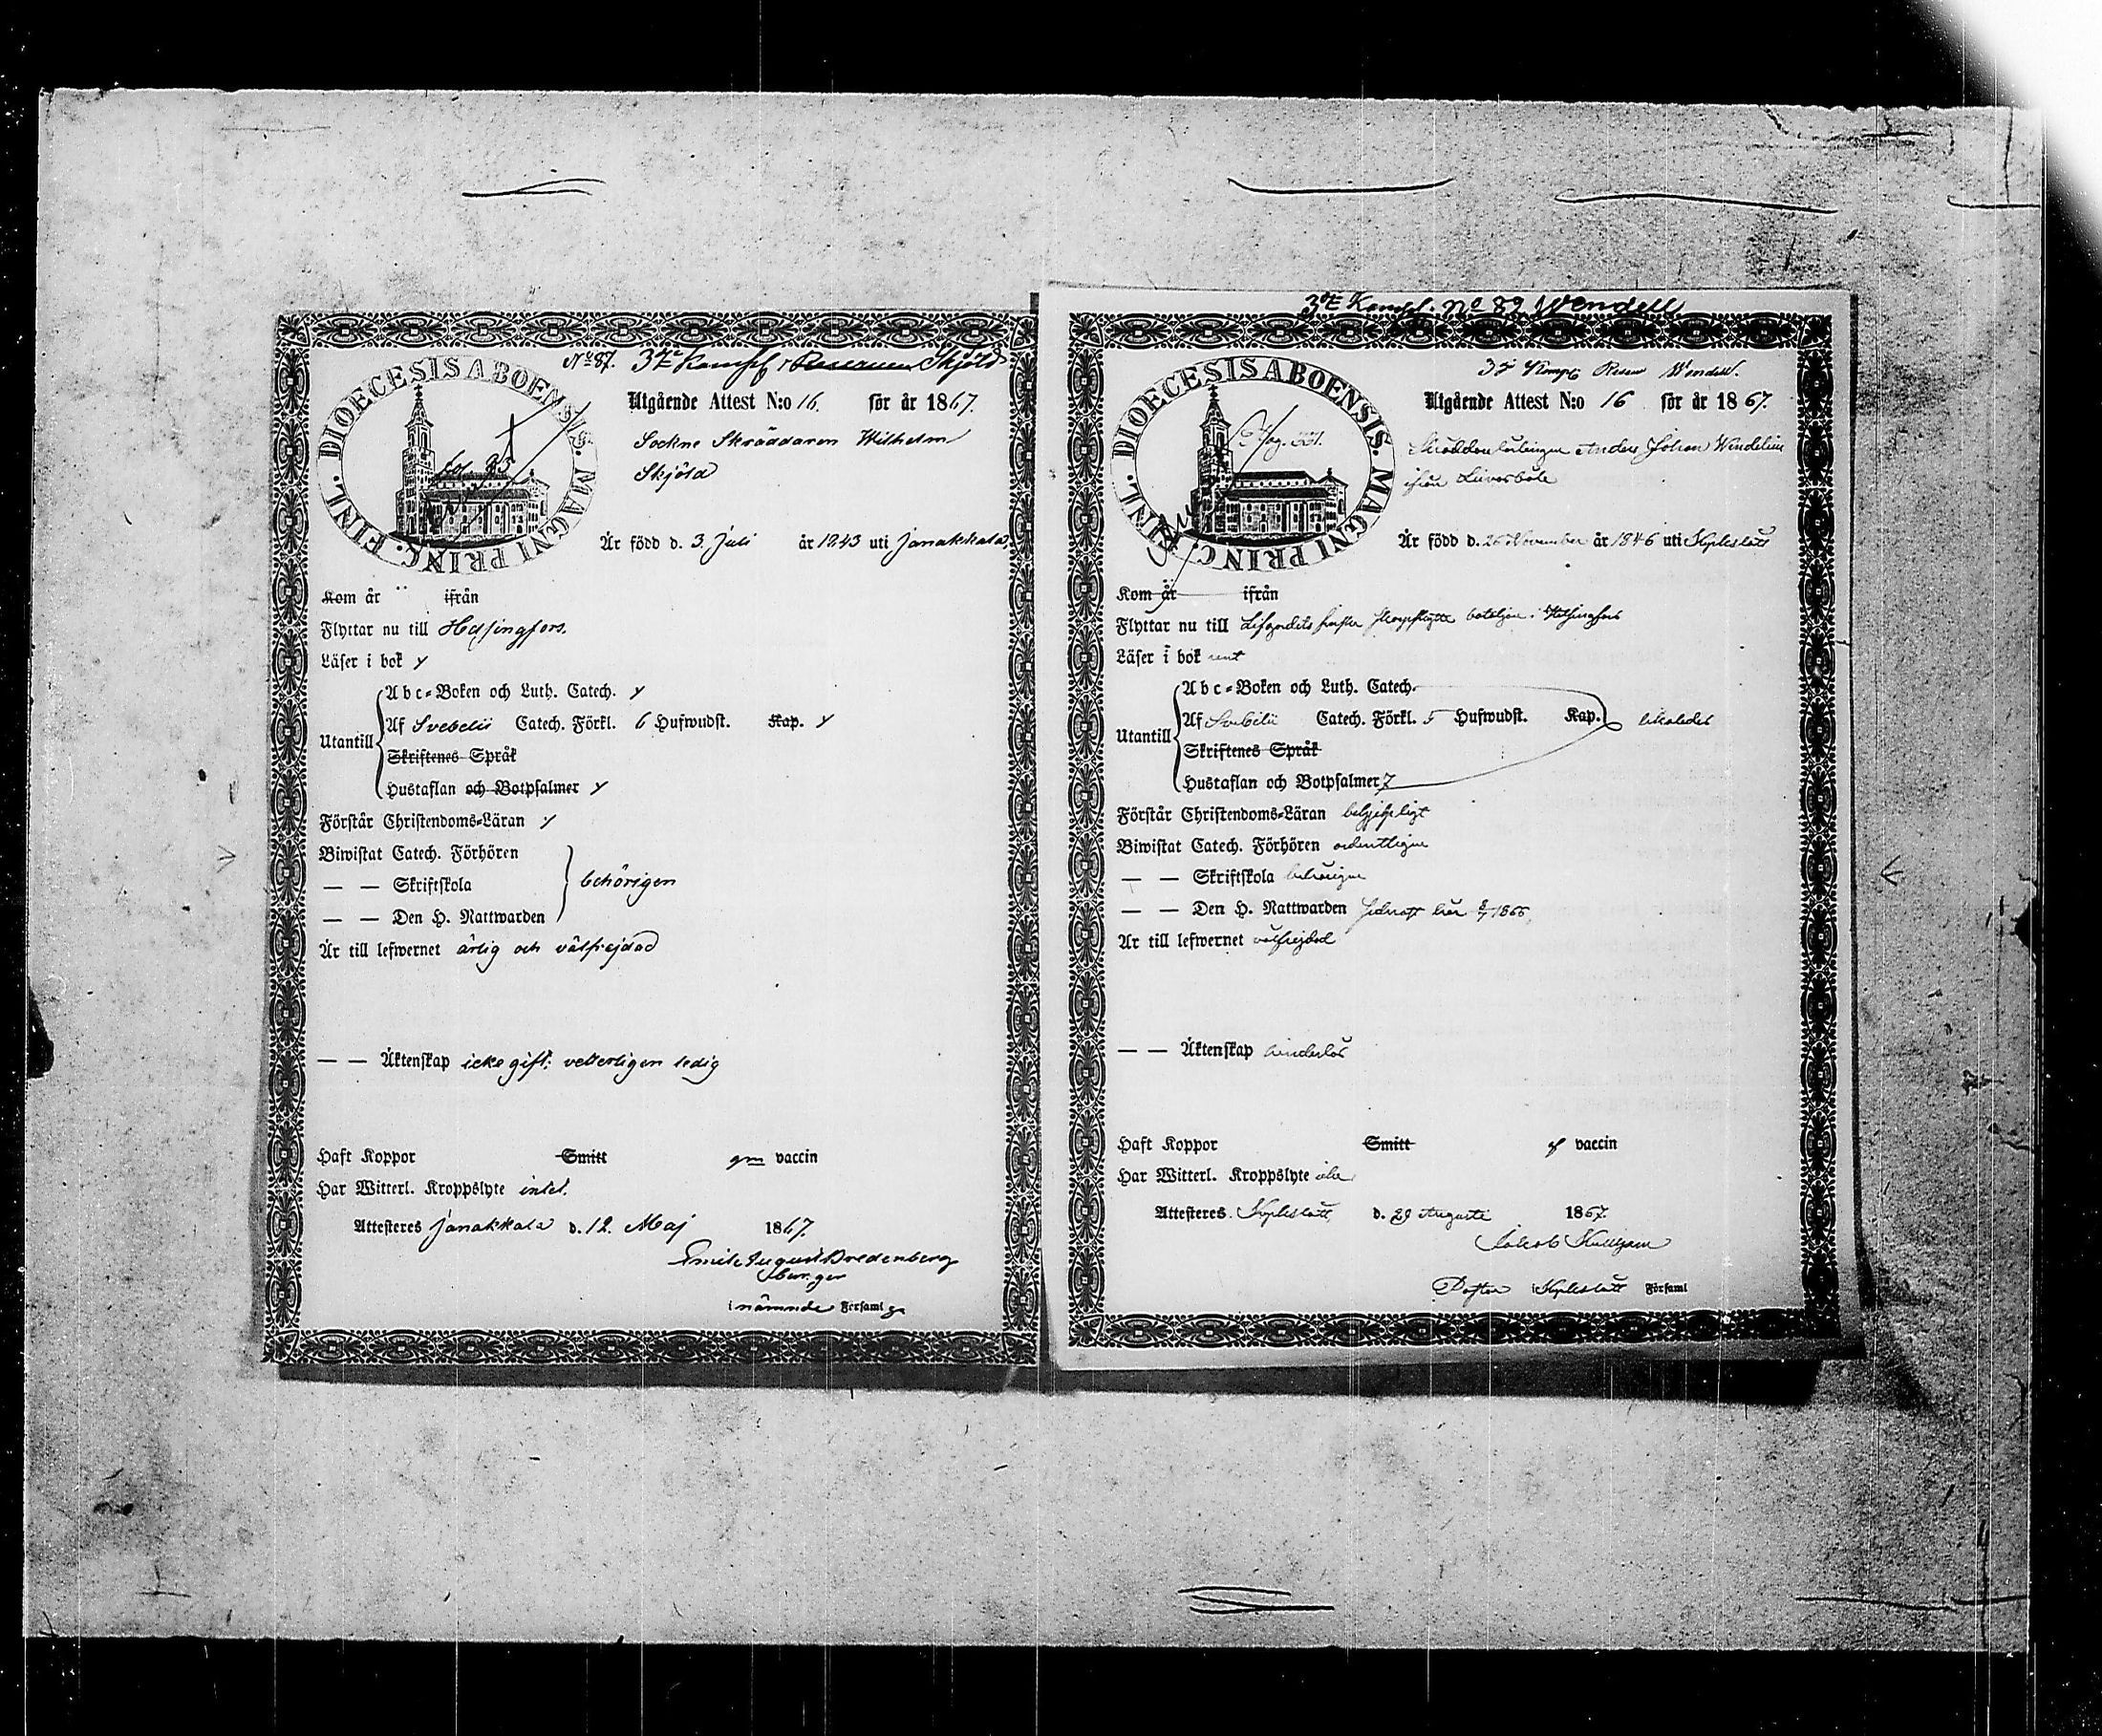 No 87. 3je Komp. Reserven Skjöld
DIOECESIS ABOENSIS. MAGNI PRINC. FINL.
Utgående Attest N:o 16. för år 1867.
Sockne Skräddaren Wilhelm
Skjöld
Är född d. 3 Juli år 1843 uti Janakkala,
Kom år ifrån
Flyttar nu till Helsingfors.
Läser i bok y
Utantill
Abc-Boken och Luth. Catech. y
Af Svebelii Catech. Förkl. 6 Hufwudst. Kap. y
Skriftenes Språk
Hustaflan och Botpsalmer y
Förstår Christendoms-Läran y
Biwistat Catech. Förhören
— — Skriftskola behörigen
— — Den H. Nattwarden
Är till lefwernet ärlig och välfrejdad
— — Äktenskap icke gift: veterligen ledig
Haft Koppor Smitt gm vaccin
Har Witterl. Kroppslyte intet.
Attesteres Janakkala d. 12. Maj 1867.
Emil August Bredenberg
i nämnde Församlg
3je Komp. No 89 Wendell
3je Komp Reserv Wendell.
DIOECESIS ABOENSIS. MAGNI PRINC. FINL.
pag. 331.
Utgående Attest N:o 16 för år 1867.
Skräddarlärlingen Anders Johan Wendelin
ifrån
Är född d. 26 November år 1846 uti Kyrkslätt
Kom år ifrån
Flyttar nu till i Helsingfors
Läser i bok rent
Utantill
Abc-Boken och Luth. Catech.
Af Svebilii Catech. Förkl. 5 Hufwudst. Kap.
Skriftenes Språk
Hustaflan och Botpsalmer 7
Förstår Christendoms-Läran
Biwistat Catech. Förhören ordentligen
— — Skriftskola behörigen
— — Den H. Nattwarden
Är till lefwernet välfrejdad
— — Äktenskap hinderlös
Haft Koppor Smitt af vaccin
Har Witterl. Kroppslyte
Attesteres Kyrkslätt d. 29 Augusti 1867.
Jakob
Pastor i Kyrkslätt Församl